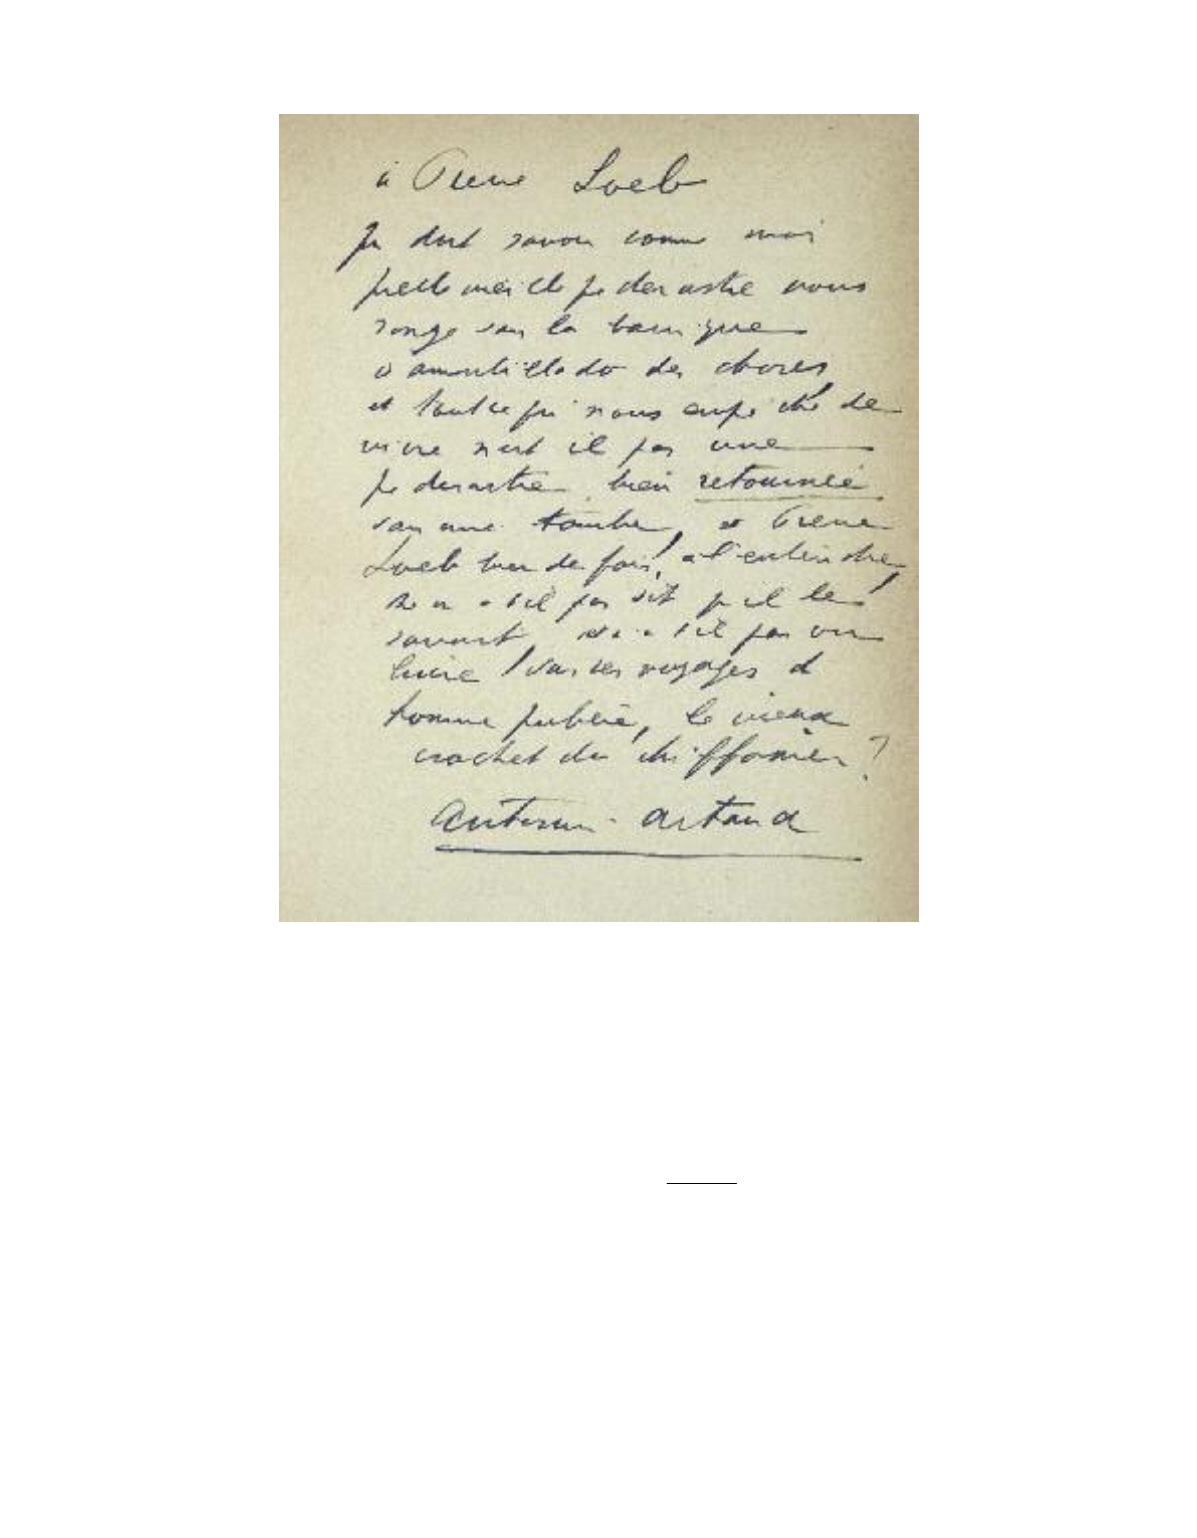 à Pierre Loeb
doit savoir comme moi
quelle pederastie nous
ronge dans la barrique
d amontillado des choses
et tout ce qui nous empêche de
vivre n est il pas une
pederastie bien retournée
dans une tombe, et Pierre
Loeb bien de fois, à l'entendre,
ne m a t il pas dit qu il le
savait, n a t il pas vu
luire dans ses voyages d
homme publié, le vieux
crochet du chiffonier?
Antonin Artaud